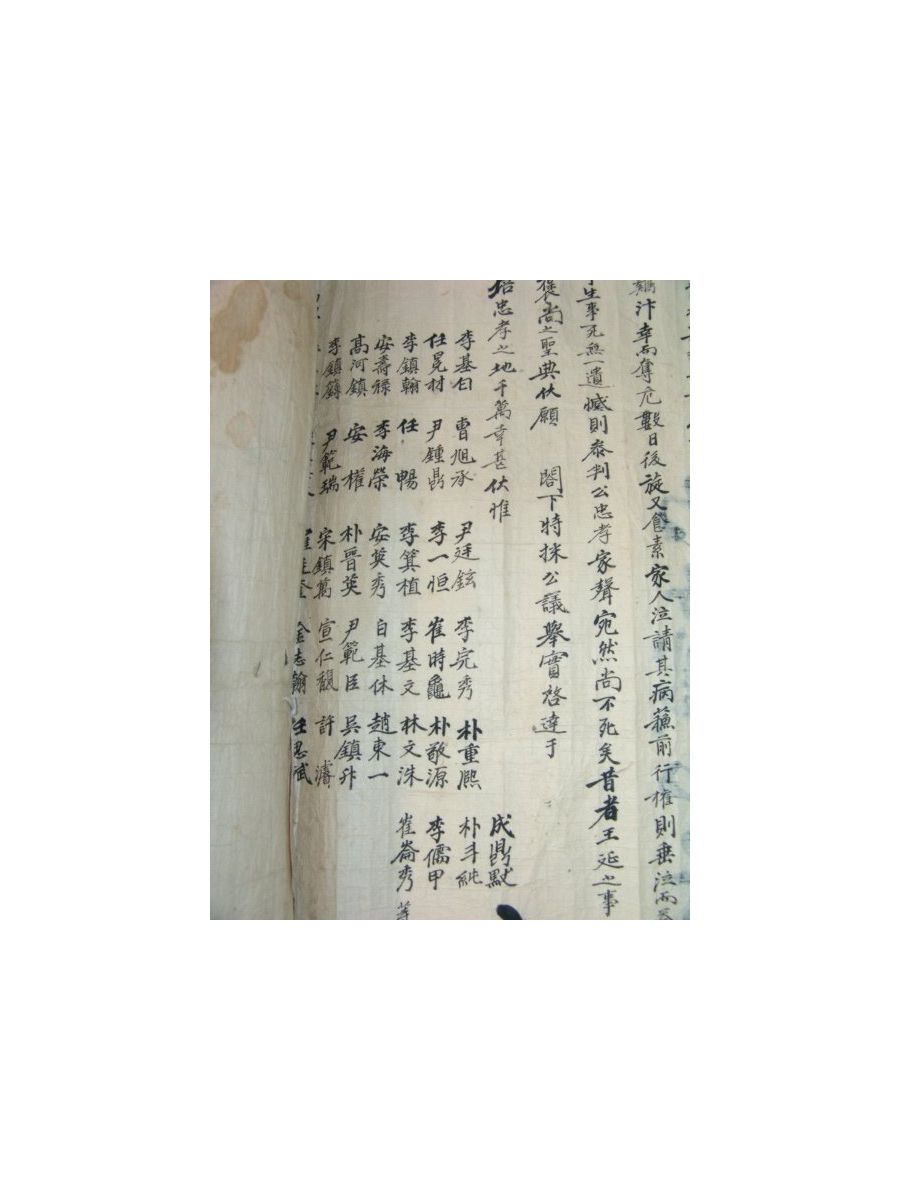 汴幸而奪危數日後旋又食素家人泣請其病蘓前行權則垂泣而
生事死無一遺憾則泰判公忠孝家聲宛然尚不死矣昔者王延之事
褒尚之聖典伏願 閤下特採公議擧實啓達于
培忠孝之地千萬幸甚伏惟 成鼎默
李基白 曺旭承 尹廷鉉 李宗秀 朴重熙 朴斗純
任冕材 尹鍾鼎 李一恒 崔時龜 朴敬源 李儒甲
李鎮翰 任暢 李箕植 李基文 林文洙 崔崙秀 等
安壽祿 李海榮 安英秀 白基休 趙東一
高河鎮 安權 朴晋英 尹範臣 吳鎮升
李鎮 尹範瑞 宋鎮萬 宣仁馥 許濬
金志翰 任思斌